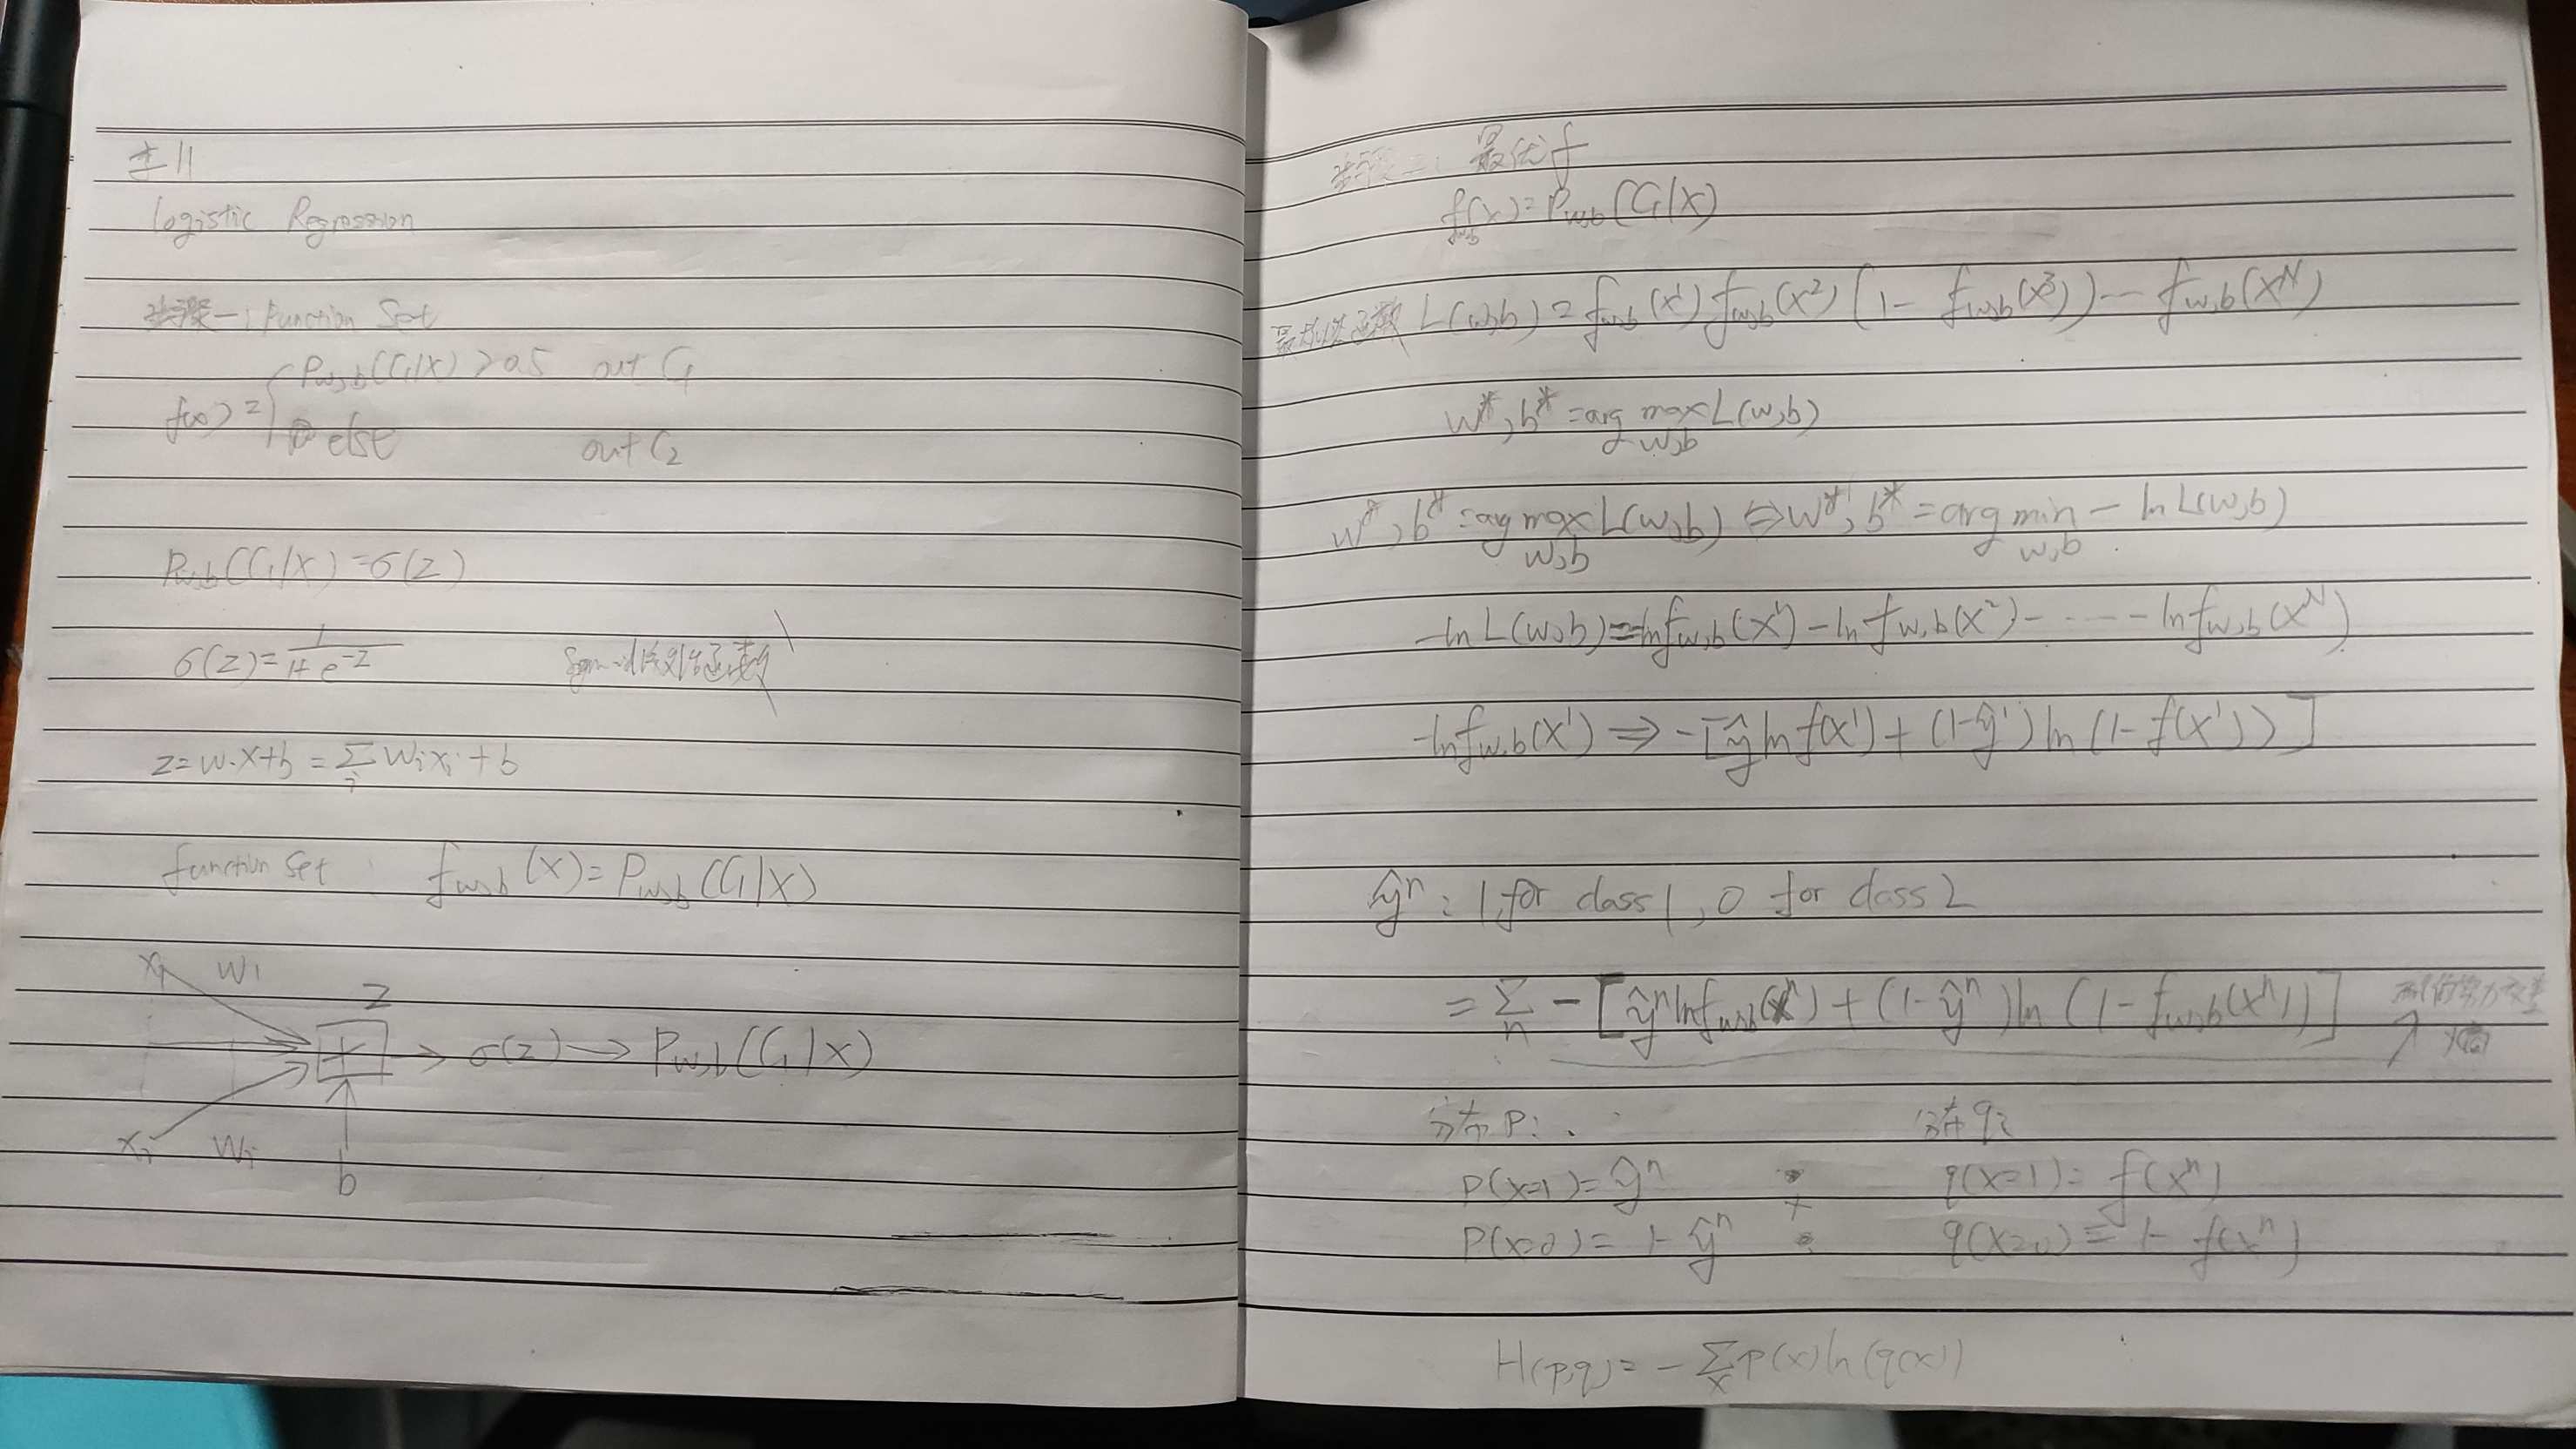 Logistic Regression
步骤一: Function Set
f(x) = { P_{w,b}(C_1|x) > 0.5 out C_1
else out C_2
P_{w,b}(C_1|x) = σ(z)
σ(z) = 1/(1+e^{-z}) 函数
z = w·x + b = Σ_i w_i x_i + b
function set : f_{w,b}(x) = P_{w,b}(C_1|x)
x_1 w_1
z
+ → σ(z) → P_{w,b}(C_1|x)
x_i w_i
b
步骤二: 最优 f
f_{w,b}(x) = P_{w,b}(C_1|x)
函数 L(w,b) = f_{w,b}(x^1) f_{w,b}(x^2) (1 - f_{w,b}(x^3)) --- f_{w,b}(x^N)
w*, b* = arg max_{w,b} L(w,b)
w*, b* = arg max_{w,b} L(w,b) ⇔ w*, b* = arg min_{w,b} - ln L(w,b)
-ln L(w,b) = -ln f_{w,b}(x^1) - ln f_{w,b}(x^2) - ---- - ln f_{w,b}(x^N)
-ln f_{w,b}(x^1) ⇒ -[ŷ ln f(x^1) + (1-ŷ^1) ln (1 - f(x^1))]
ŷ^n : 1 for class 1, 0 for class 2
= Σ_n - [ŷ^n ln f_{w,b}(x^n) + (1-ŷ^n) ln (1 - f_{w,b}(x^n))] ↗ 熵
分布 p: 分布 q:
p(x=1) = ŷ^n q(x=1) = f(x^n)
p(x=0) = 1 - ŷ^n q(x=0) = 1 - f(x^n)
H(p,q) = - Σ_x p(x) ln (q(x))